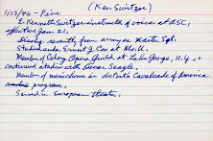 1/25/46 - Prine (Ken Switzer)
E. Kenneth Switzer instructor of voice at ASC,
effective Jan 21.
Disch. recently from army as Master Sgt.
Studied under Ernest J. Cox at
Member of Colony Opera Guild at Lake George, N.Y. &
continued studies with Oscar Seagle,
Member of male chorus in duPont's Cavalcade of America
radio program,
Served in European theater.